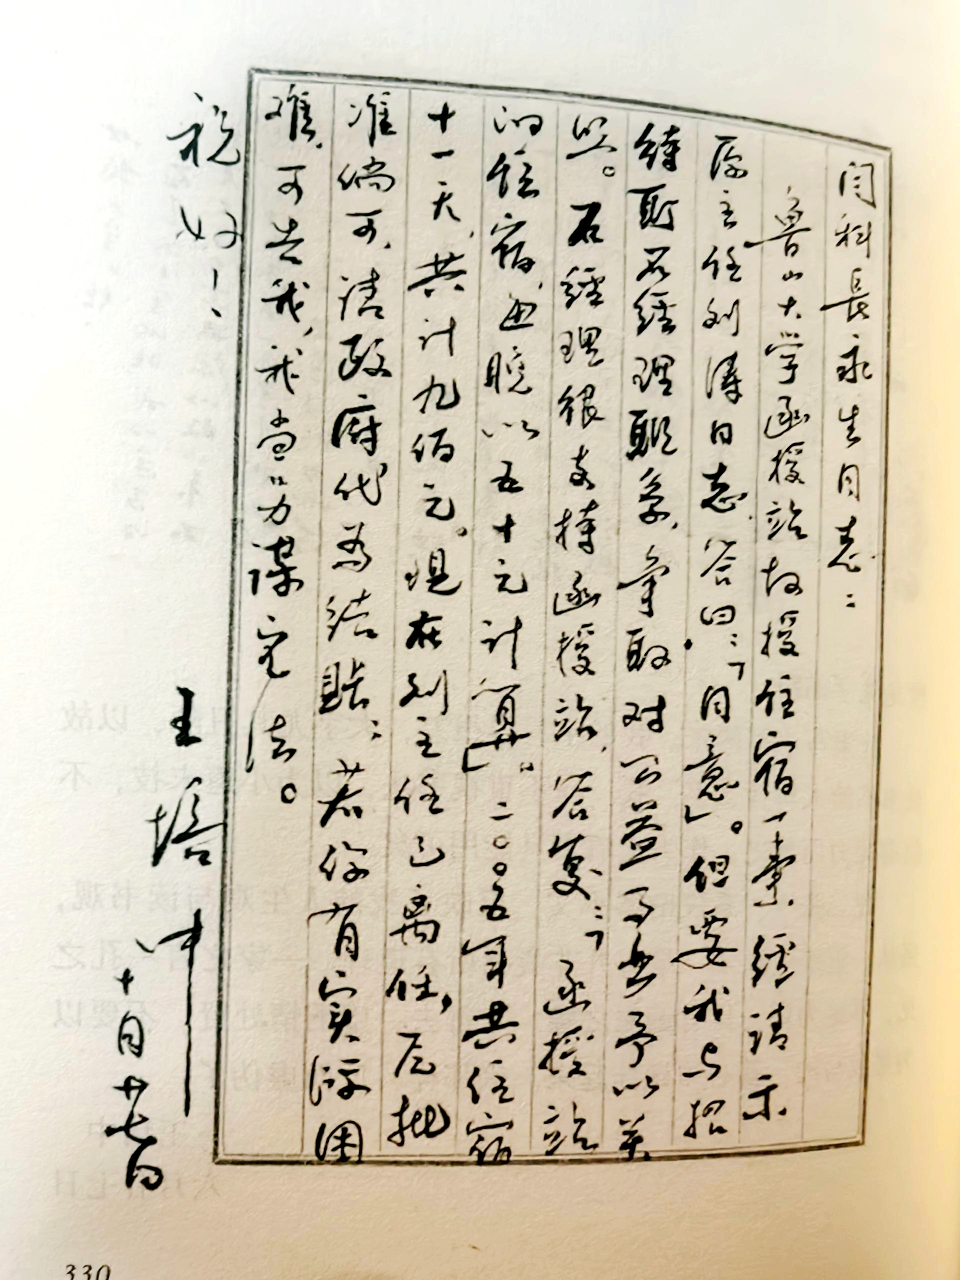 闫科长永生同志：
鲁山大学函授站教授住宿一案，经请示
原主任刘涛同志，答曰：「同意」。但要我与招
待所石经理联系，争取对公益事业予以关
照。石经理很支持函授站，答复：「函授站
的住宿，每晚以五十元计算」。二〇〇五年共住宿
十一天，共计九佰元。现在刘主任已离任，后批
准倘可，请政府代为结账；若你有实际困
难，可告我，我当另谋它法。
祝
好！
王培中
十月廿七日
330